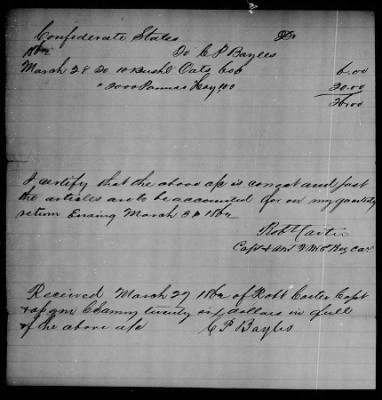 Confederate States Dr
1862 To C P Bayles
March 28 To 10 Bushl Oats 60c 6.00
" 2000 Pounds Hay 100 20.00
26.00
I certify that the above a/c is correct and just
the articles are to be accounted for on my quarterly
return Ending March 31 1862
Robt Carter
Capt & Ast Q M Reg Cav
Received March 29 1862 of Robt Carter Capt
& a q m twenty six dollars in full
of the above a/c C P Bayles